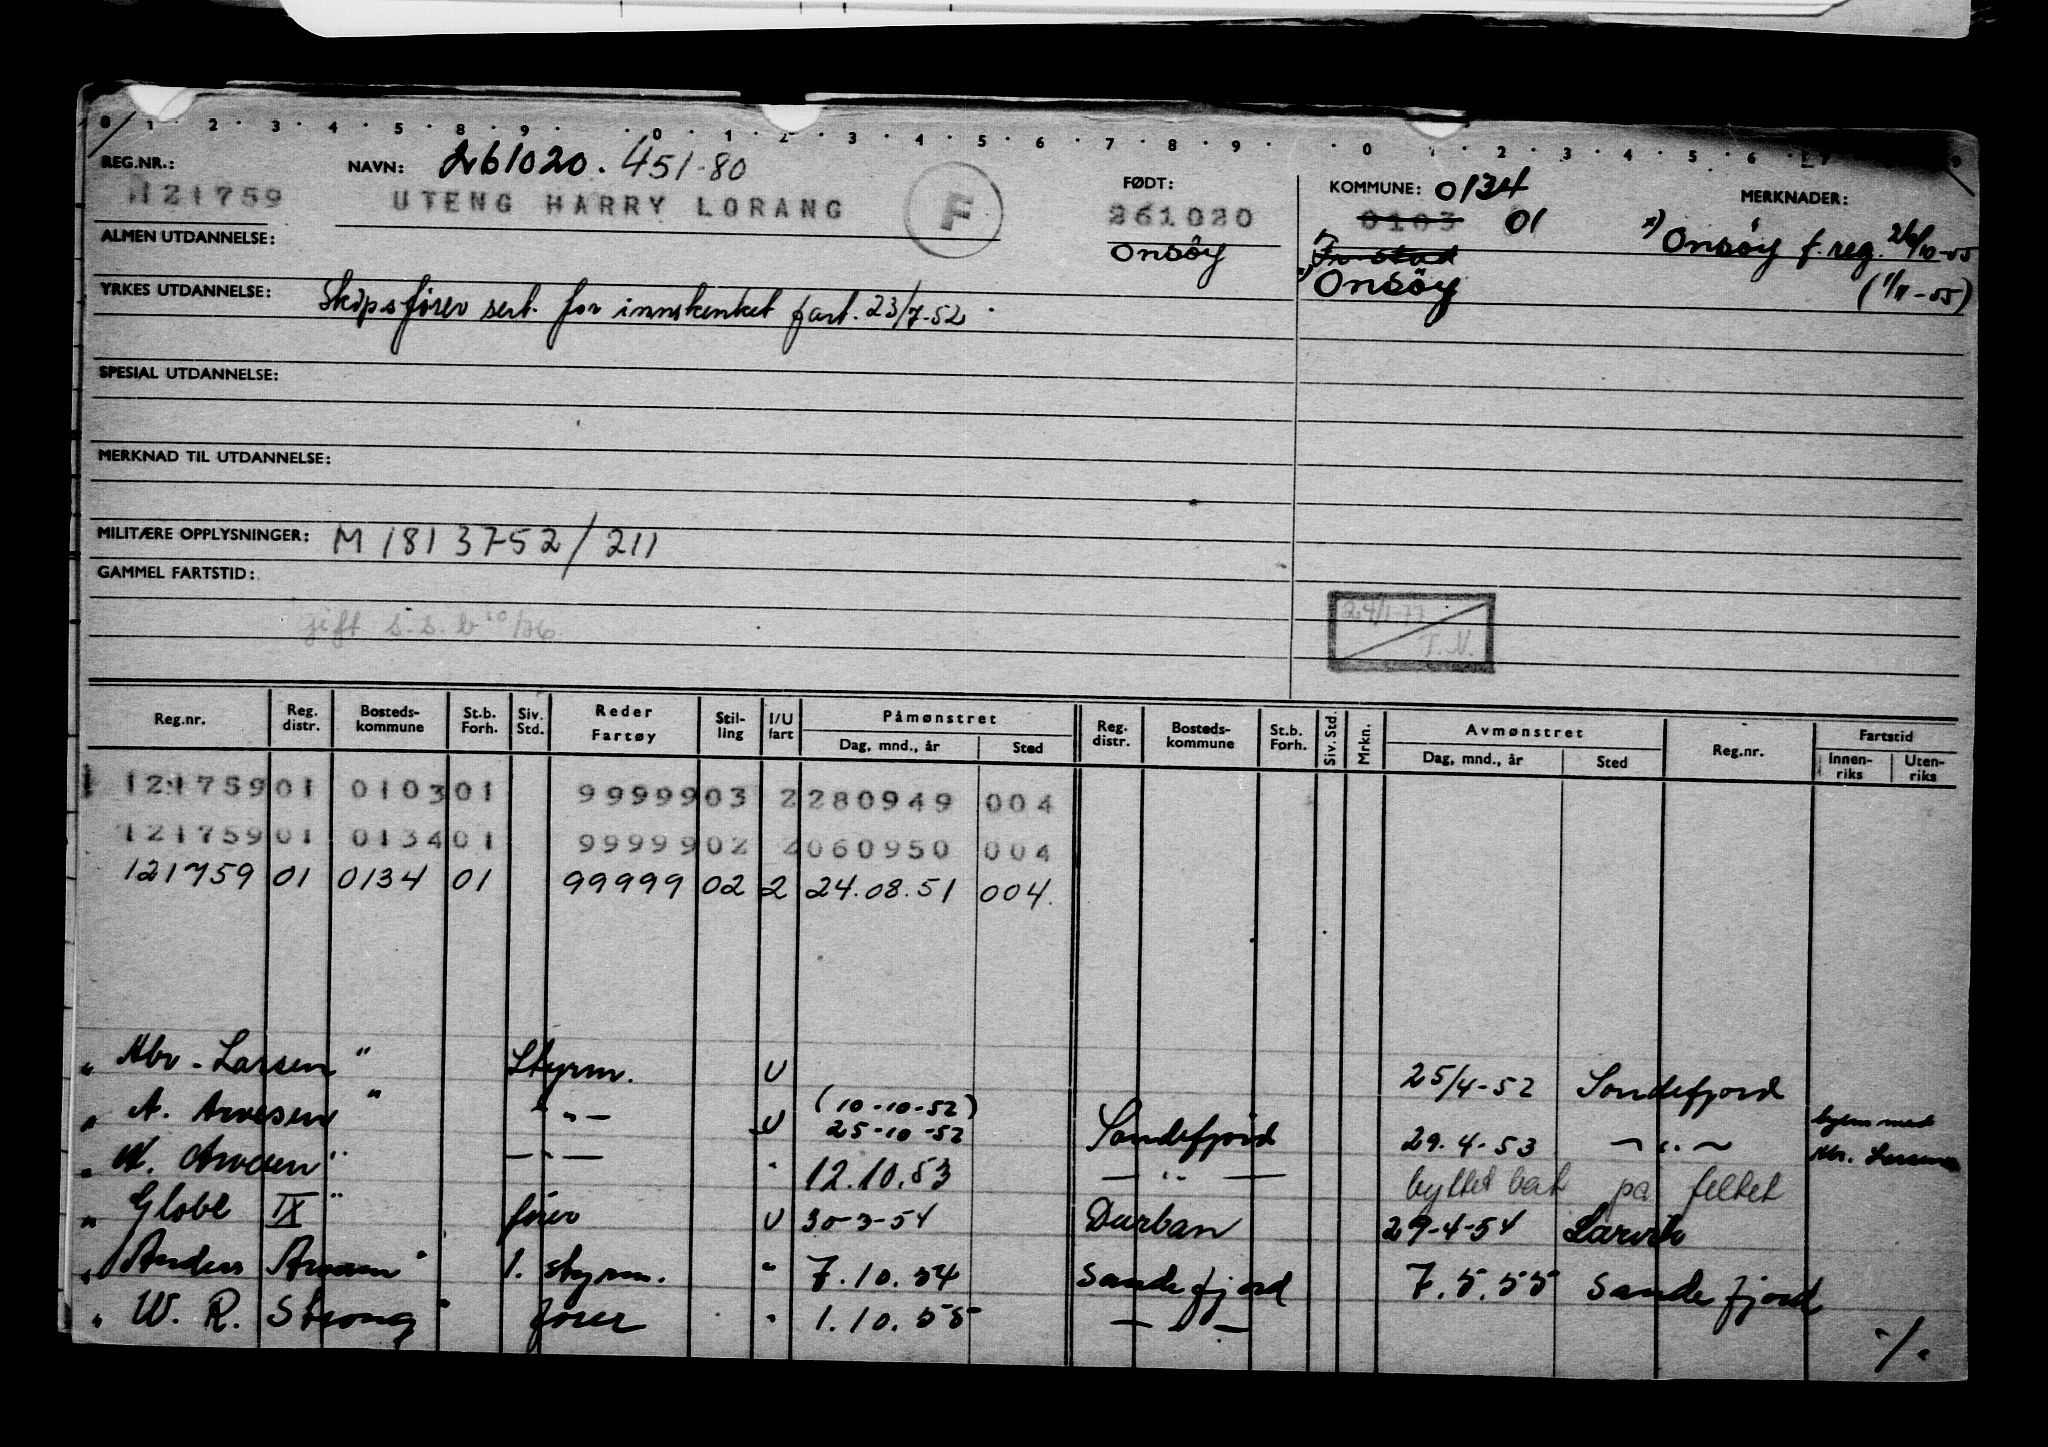 0 1 2 3 4 5 8 9 0 1 2 3 4 5 6 7 8 9 0 1 2 3 4 5 6 7 9
REG.NR.: NAVN: 261020. 451-80 FØDT: KOMMUNE: 0134 MERKNADER:
121759 UTENG HARRY LORANG F 261020 0103 01 x) Onsöy f.reg. 26/10-55
ALMEN UTDANNELSE: Onsöy
YRKES UTDANNELSE: Skipsfører sert. for innskenket fart. 23/7-52 x) Onsöy (1/11-55)
SPESIAL UTDANNELSE:
MERKNAD TIL UTDANNELSE:
MILITÆRE OPPLYSNINGER: M 1813752/211
GAMMEL FARTSTID:
gift s.s.b 10/76 24/1-77 T.N.
Reg.nr. Reg. distr. Bosteds-kommune St.b. Forh. Siv. Std. Reder Fartøy Stil-ling I/U fart Påmønstret Dag, mnd., år Sted Reg. distr. Bosteds-kommune St.b. Forh. Siv. Std. Mrkn. Avmønstret Dag, mnd., år Sted Reg.nr. Fartstid Innen-riks Uten-riks
121759 01 0103 01 99999 03 2 280949 004
121759 01 0134 01 99999 02 2 060950 004
121759 01 0134 01 99999 02 2 24.08.51 004.
" Abr. Larsen " Styrm. U 25/4-52 Sandefjord
" A. Arvesen " " — U (10-10-52) 25-10-52 Sandefjord 29.4-53 — " — byem med Abr. Larsen
" A. Arvesen " — " — " 12.10.53 — " — byttet båt på feltet
" Globe IX " fører U 30-3-54 Durban 29-4-54 Larvik
" Anders Arvesen " 1. styrm. " 7.10.54 Sandefjord 7.5.55 Sandefjord
" W. R. Strong " fører " 1.10.55 — " — ./.